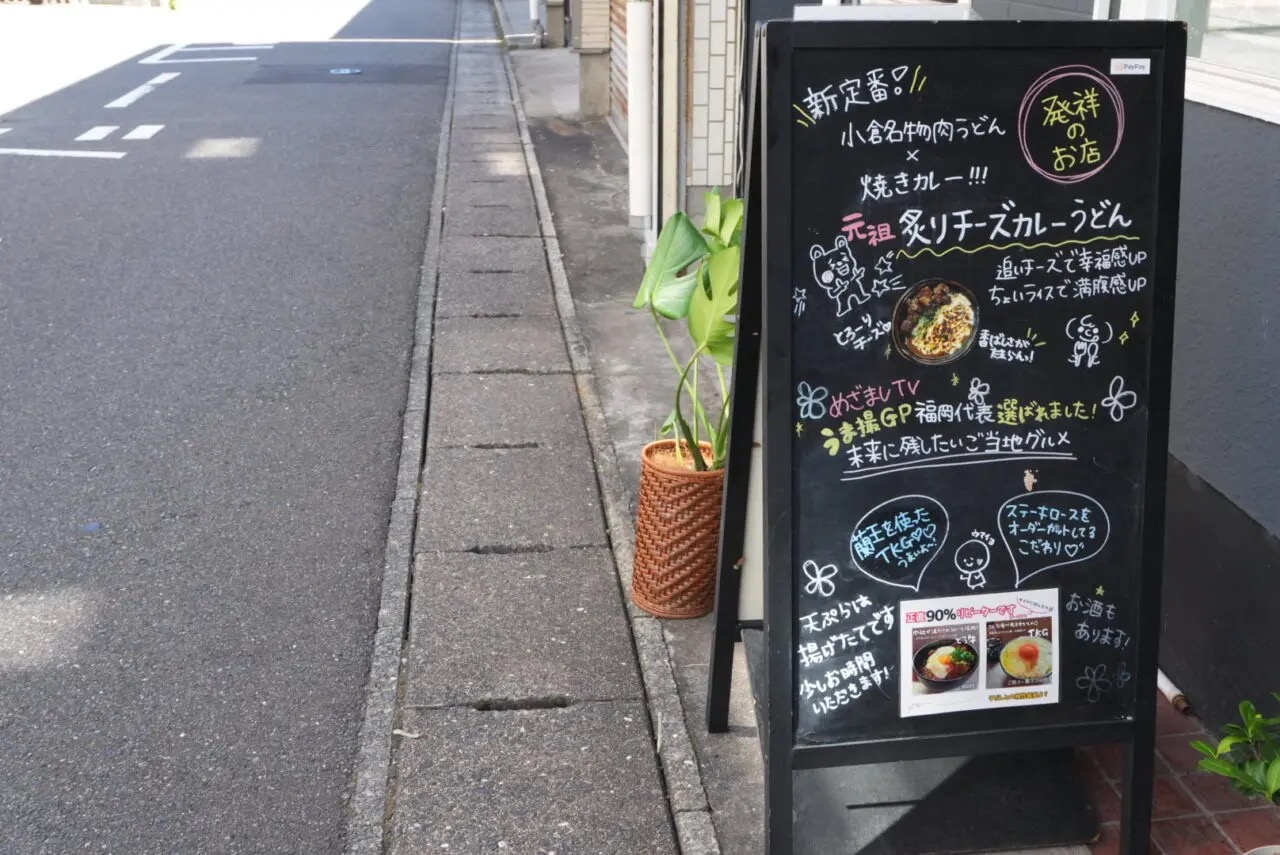 PayPay
新定番!
発祥
の
お店
小倉名物肉うどん
×
焼きカレー!!!
元祖 炙りチーズカレーうどん
追いチーズで幸福感UP
ちょいライスで満腹感UP
とろーり
チーズ♡
香ばしさが
たまらん!
めざましTV
うま撮GP福岡代表選ばれました!
未来に残したいご当地グルメ
蘭王を使った
TKG♡♡
うまいよ〜
ステーキロースを
オーダーカットしてる
こだわり♡
ウマイヨ
天ぷらは
揚げたてです
少しお時間
いただきます!
正直90%リピーターです
TKG
お酒も
あります!